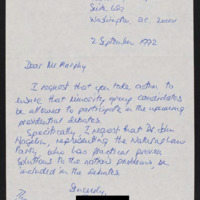 Suite 602
Washington D.C. 200
2 September 1992
Dear Mr Murphy
I request that you take action to
ensure that minority group candidates
be allowed to participate in the upcoming
presidential debates.
Specifically I request that Dr John
Hagelin, representing the Natural Law
Party who has practical proven
solutions to the nation's problems be
included in the debates.
Sincerely,